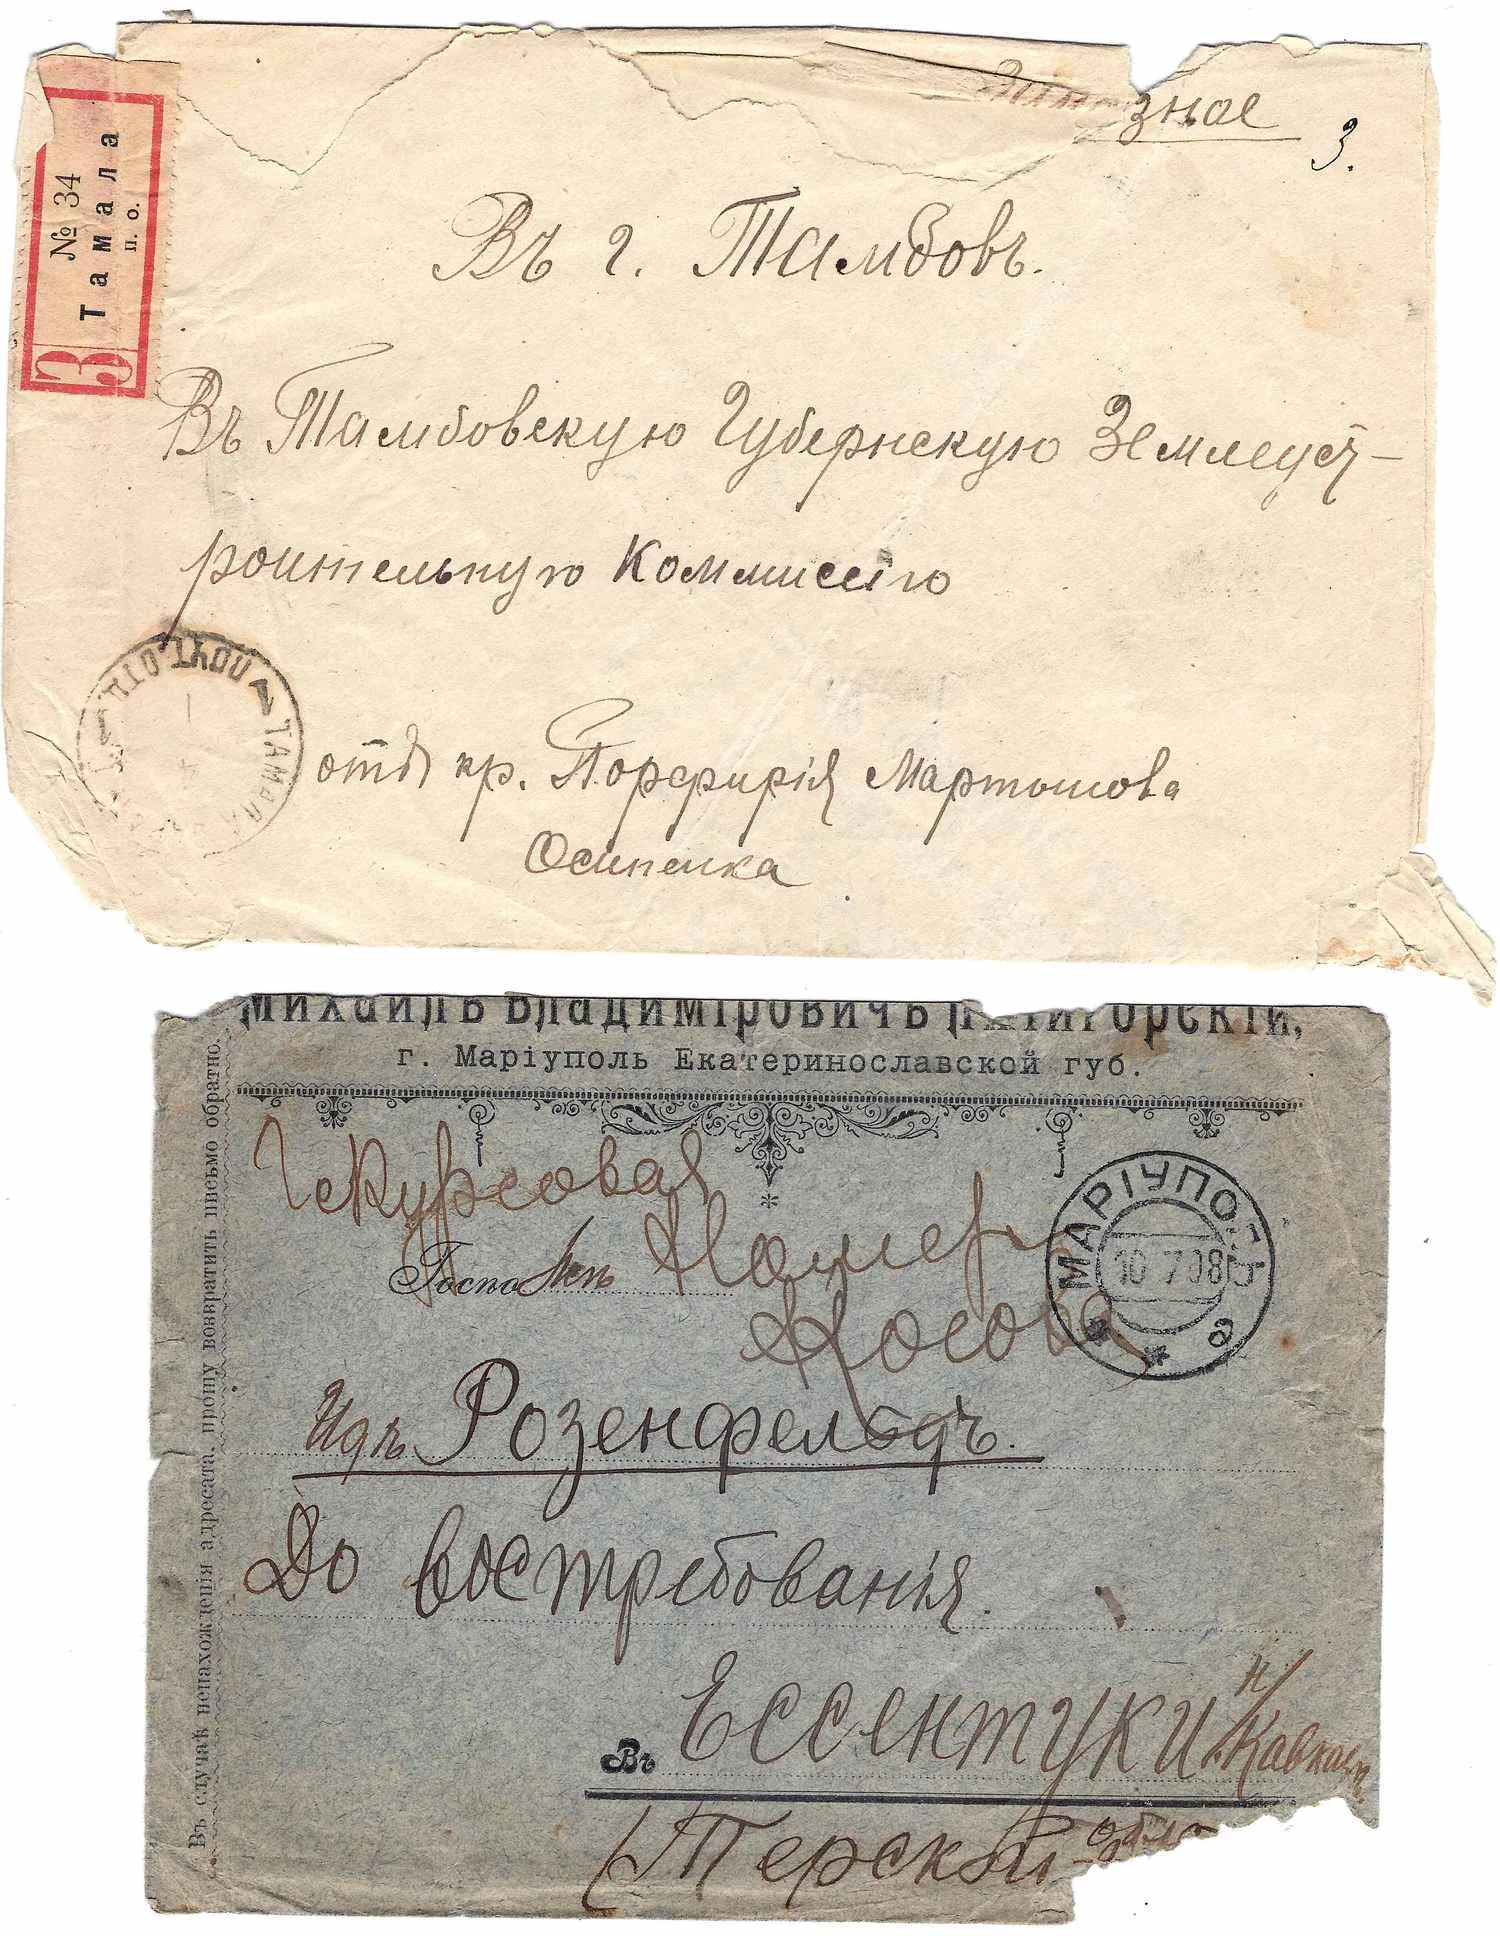 зное
3.
№ 34
Тамала
п. о.
З
Въ г. Тамбовъ.
Въ Тамбовскую Губернскую Землеуст-
роительную Коммиссію
ПОЧТ. ОТД.
ТАМАЛА
отъ кр. Порфирія Мартышова
Осипенка
Михаилъ Владиміровичъ Пятигорскій,
г. Маріуполь Екатеринославской губ.
Въ случаѣ ненахожденія адресата, прошу возвратить письмо обратно.
Курсовая
МАРІУПОЛЬ
10 7 08
а
Носова
Идѣ Розенфельдъ.
До востребованія.
Въ Ессентуки Н/Кавказа
(Терской обла